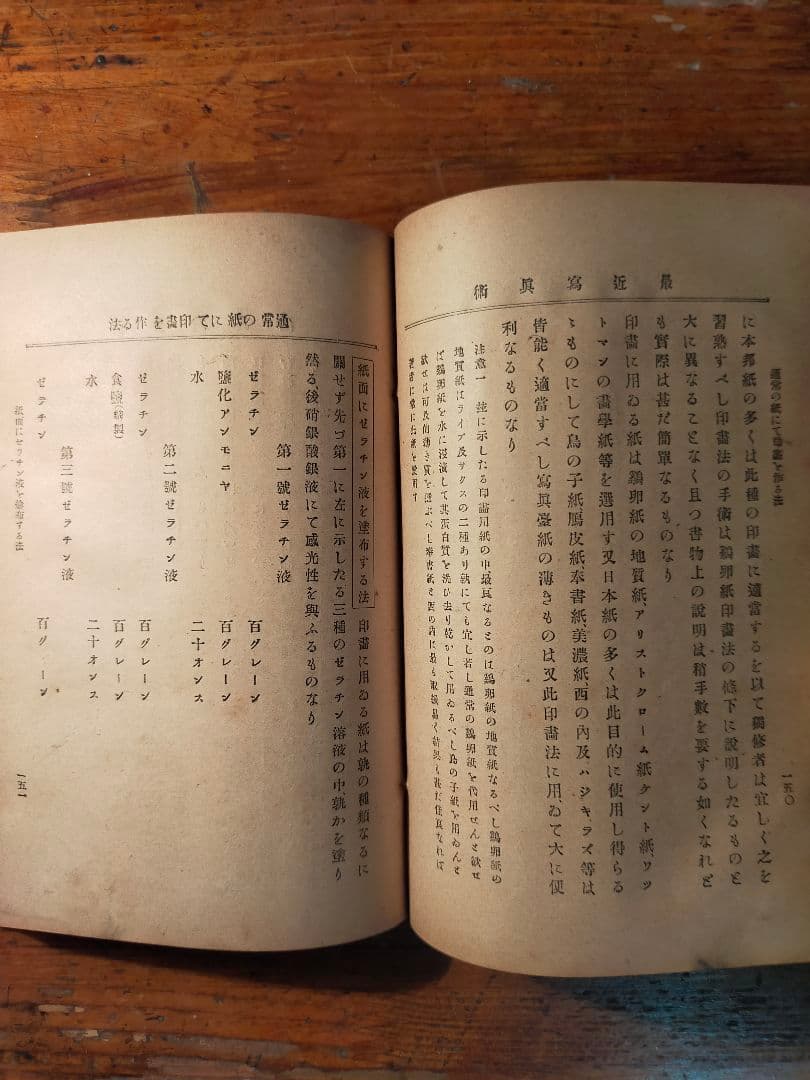 最近寫眞術
通常の紙にて印畵を作る法
一五〇
に本邦紙の多くは此種の印畵に適當するを以て獨修者は宜しく之を
習熟すべし印畵法の手術は鷄卵紙印畵法の條下に說明したるものと
大に異なることなく且つ書物上の說明は稍手數を要する如くなれど
も實際は甚だ簡單なるものなり
印畵に用ゐる紙は鷄卵紙の地質紙、アリストクローム紙ケント紙、ワツ
トマンの畵學紙等を選用す又日本紙の多くは此目的に使用し得らる
ゝものにして鳥の子紙鴈皮紙、奉書紙、美濃紙、西の內及ハジキラズ等は
皆能く適當すべし寫眞臺紙の薄きものは又此印畵法に用ゐて大に便
利なるものなり
注意一 玆に示したる印畵用紙の中、最良なるものは鷄卵紙の地質紙なるべし鷄卵紙の
地質紙はライブ及サクスの二種あり孰にても宜し若し通常の鷄卵紙を代用せんと欲せ
ば鷄卵紙を水に浸漬して其蛋白質を洗ひ去り乾かして用ゐるべし鳥の子紙を用ゐんと
欲せば可及的薄き質を選ぶべし奉書紙は西の內に最も取扱易く結果も甚だ佳良なれば
著者は常に此紙を使用す
通常の紙にて印畵を作る法
紙面にゼラチン液を塗布する法 印畵に用ゐる紙は孰の種類なるに
關せず先づ第一に左に示したる三種のゼラチン溶液の中、孰かを塗り
然る後硝酸銀液にて感光性を與ふるものなり
第一號ゼラチン液
ゼラチン 百グレーン
鹽化アンモニヤ 百グレーン
水 二十オンス
第二號ゼラチン液
ゼラチン 百グレーン
食鹽(精製) 百グレーン
水 二十オンス
第三號ゼラチン液
ゼラチン 百グレーン
紙面にゼラチン液を塗布する法
一五一